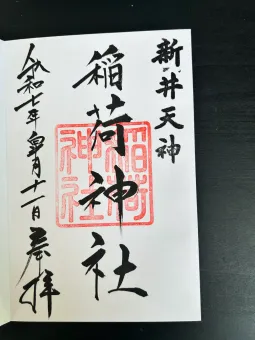 新井天神
稲荷神社
稲荷
神社
令和七年皐月十一日参拝